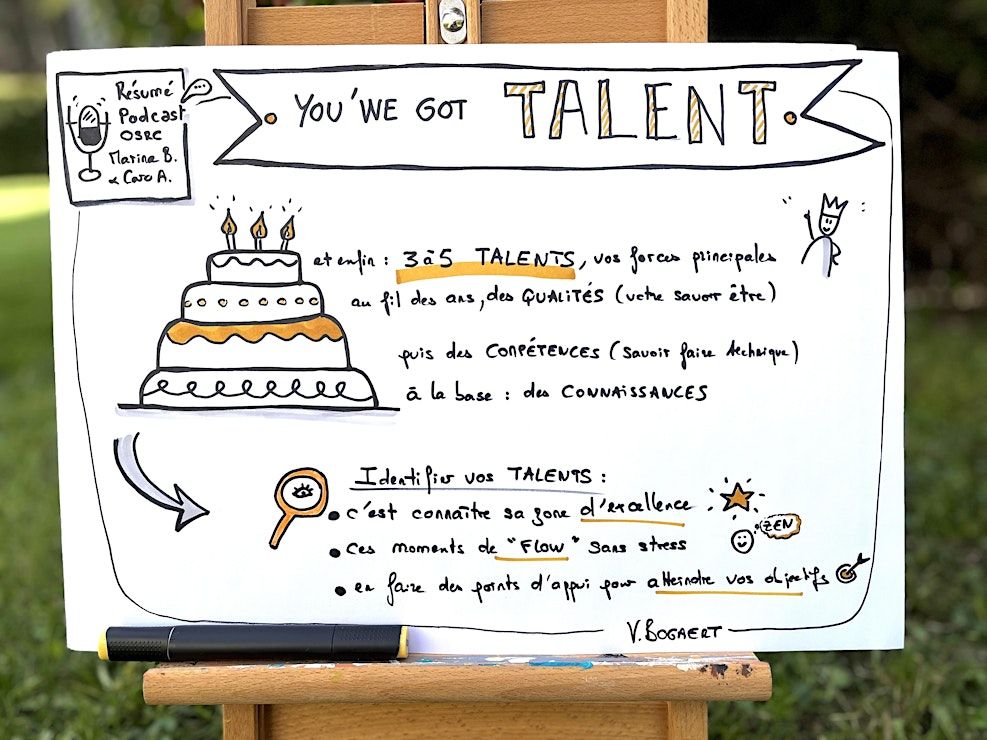 Résumé
Podcast
OSRC
Marina B.
& Caro A.
YOU'WE GOT TALENT
et enfin : 3 à 5 TALENTS, vos forces principales
au fil des ans, des QUALITÉS (votre savoir être)
puis des COMPÉTENCES (savoir faire technique)
à la base : des CONNAISSANCES
Identifier vos TALENTS :
• c'est connaître sa zone d'excellence
ZEN
• ces moments de "FLOW" sans stress
• en faire des points d'appui pour atteindre vos objectifs
V.BOGAERT